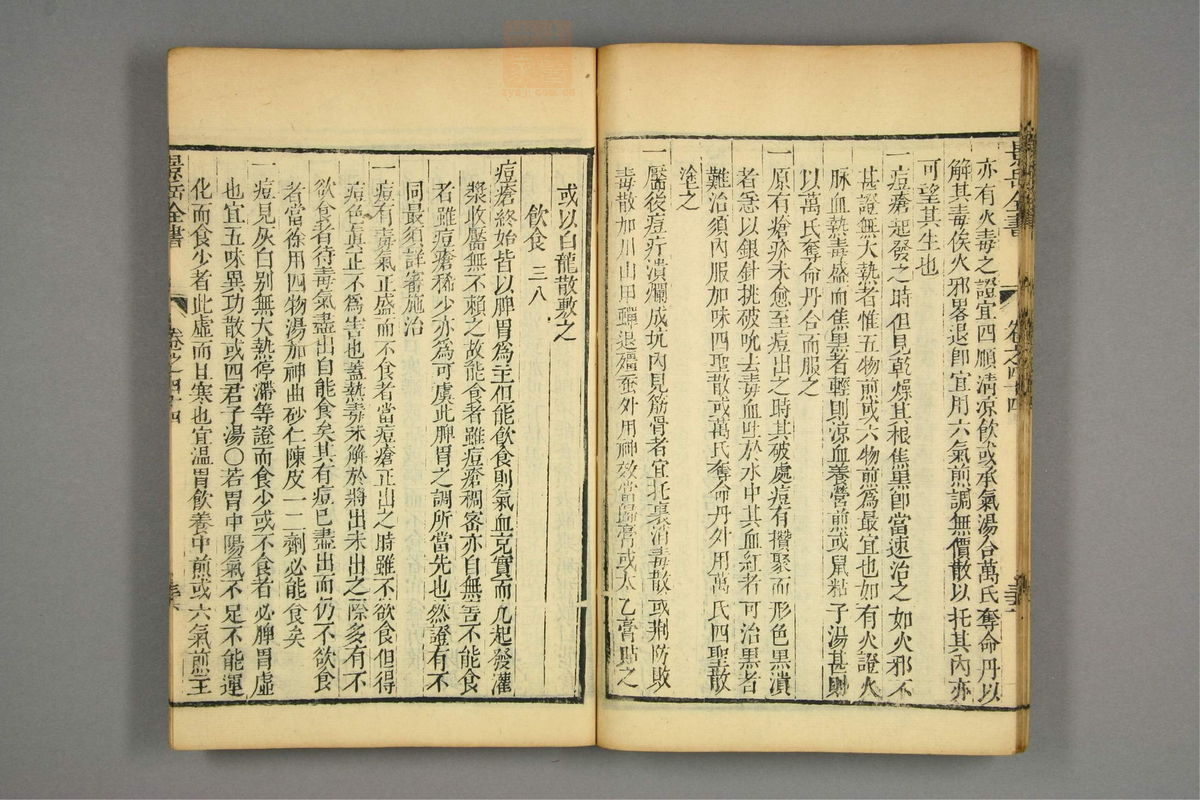 亦有火毒之證宜四順清涼飲或承氣湯合萬氏奪命丹以
解其毒俟火邪畧退卽宜用六氣煎調無價散以托其內亦
可望其生也
一痘瘡起發之時但見乾燥其根焦黑卽當速治之如火邪不
甚證無大熱者惟五物煎或六物煎爲最宜也如有火證火
脉血熱毒盛而焦黑者輕則涼血養營煎或鼠粘子湯甚則
以萬氏奪命丹合而服之
一原有瘡疥未愈至痘出之時其破處痘有攢聚而形色黑潰
者急以銀針挑破吮去毒血吐於水中其血紅者可治黑者
難治須內服加味四聖散或萬氏奪命丹外用萬氏四聖散
塗之
一靨後痘疔潰爛成坑內見筋骨者宜托裏消毒散或荆防敗
毒散加川山甲蟬退殭蚕外用神效當歸膏或太乙膏貼之
景岳全書
卷之四十四
或以白龍散敷之
飲食 三八
痘瘡終始皆以脾胃爲主但能飲食則氣血充實而凡起發灌
漿收靨無不賴之故能食者雖痘瘡稠密亦自無害不能食
者雖痘瘡稀少亦爲可虞此脾胃之調所當先也然證有不
同最須詳審施治
一痘有毒氣正盛而不食者當痘瘡正出之時雖不欲食但得
痘色眞正不爲害也蓋熱毒未解於將出未出之際多有不
欲食者待毒氣盡出自能食矣其有痘已盡出而仍不欲食
者當徐用四物湯加神曲砂仁陳皮一二劑必能食矣
一痘見灰白别無大熱停滯等證而食少或不食者必脾胃虛
也宜五味異功散或四君子湯〇若胃中陽氣不足不能運
化而食少者此虛而且寒也宜溫胃飲養中煎或六氣煎主
景岳全書
卷之四十四